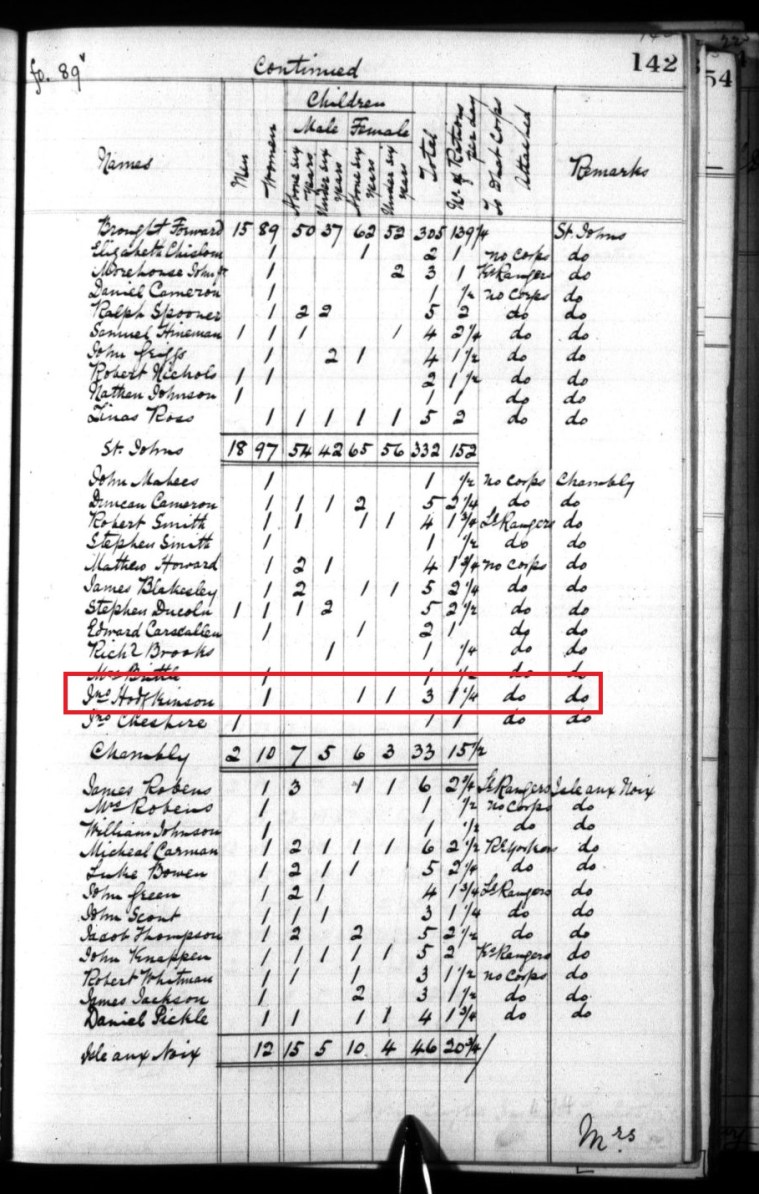 fo. 89" Continued 142
54
Children
Male Female
Names Men Women Above six years Under six years Above six years Under six years Total No. of Rations per day To What Corps Attached Remarks
Brought Forward 15 89 50 37 62 52 305 139 1/4 St. Johns
Elizabeth Chislom 1 1 2 1 no corps do
Morehouse John Jr 1 2 3 1 Ks Rangers do
Daniel Cameron 1 1 1/2 no corps do
Ralph Spooner 1 2 2 5 2 do do
Samuel Hineman 1 1 1 1 4 2 1/4 do do
John Griggs 1 2 1 4 1 1/2 do do
Robert Nichols 1 1 2 1 1/2 do do
Nathen Johnson 1 1 1 do do
Zinas Ross 1 1 1 1 1 5 2 do do
St. Johns 18 97 54 42 65 56 332 152
John Mahees 1 1 1/2 no corps Chambly
Duncan Cameron 1 1 1 2 5 2 1/4 do do
Robert Smith 1 1 1 1 4 1 3/4 Ls Rangers do
Stephen Smith 1 1 1/2 do do
Mathew Howard 1 2 1 4 1 3/4 no corps do
James Blakesley 1 2 1 1 5 2 1/4 do do
Stephen Ducoln 1 1 1 2 5 2 1/2 do do
Edward Carscallen 1 1 2 1 do do
Richd Brooks 1 1 1/4 do do
Mrs Buttle 1 1 1/2 do do
Jno Hodfkinson 1 1 1 3 1 1/4 do do
Jno Cheshire 1 1 1 do do
Chambly 2 10 7 5 6 3 33 15 1/2
James Robens 1 3 1 1 6 2 3/4 Ls Rangers Isle aux Noix
Mrs Robens 1 1 1/2 no corps do
William Johnson 1 1 1/2 do do
Micheal Carman 1 2 1 1 1 6 2 1/2 Rl Yorkers do
Luke Bowen 1 2 1 1 5 2 1/4 do do
John Green 1 2 1 4 1 3/4 Ls Rangers do
John Scout 1 1 1 3 1 1/4 do do
Jacob Thompson 1 2 2 5 2 1/2 do do
John Knappen 1 1 1 1 1 5 2 Ks Rangers do
Robert Whitman 1 1 1 3 1 1/2 no corps do
James Jackson 1 2 3 1 1/2 do do
Daniel Pickle 1 1 1 1 4 1 3/4 do do
Isle aux Noix 12 15 5 10 4 46 20 3/4
Mrs